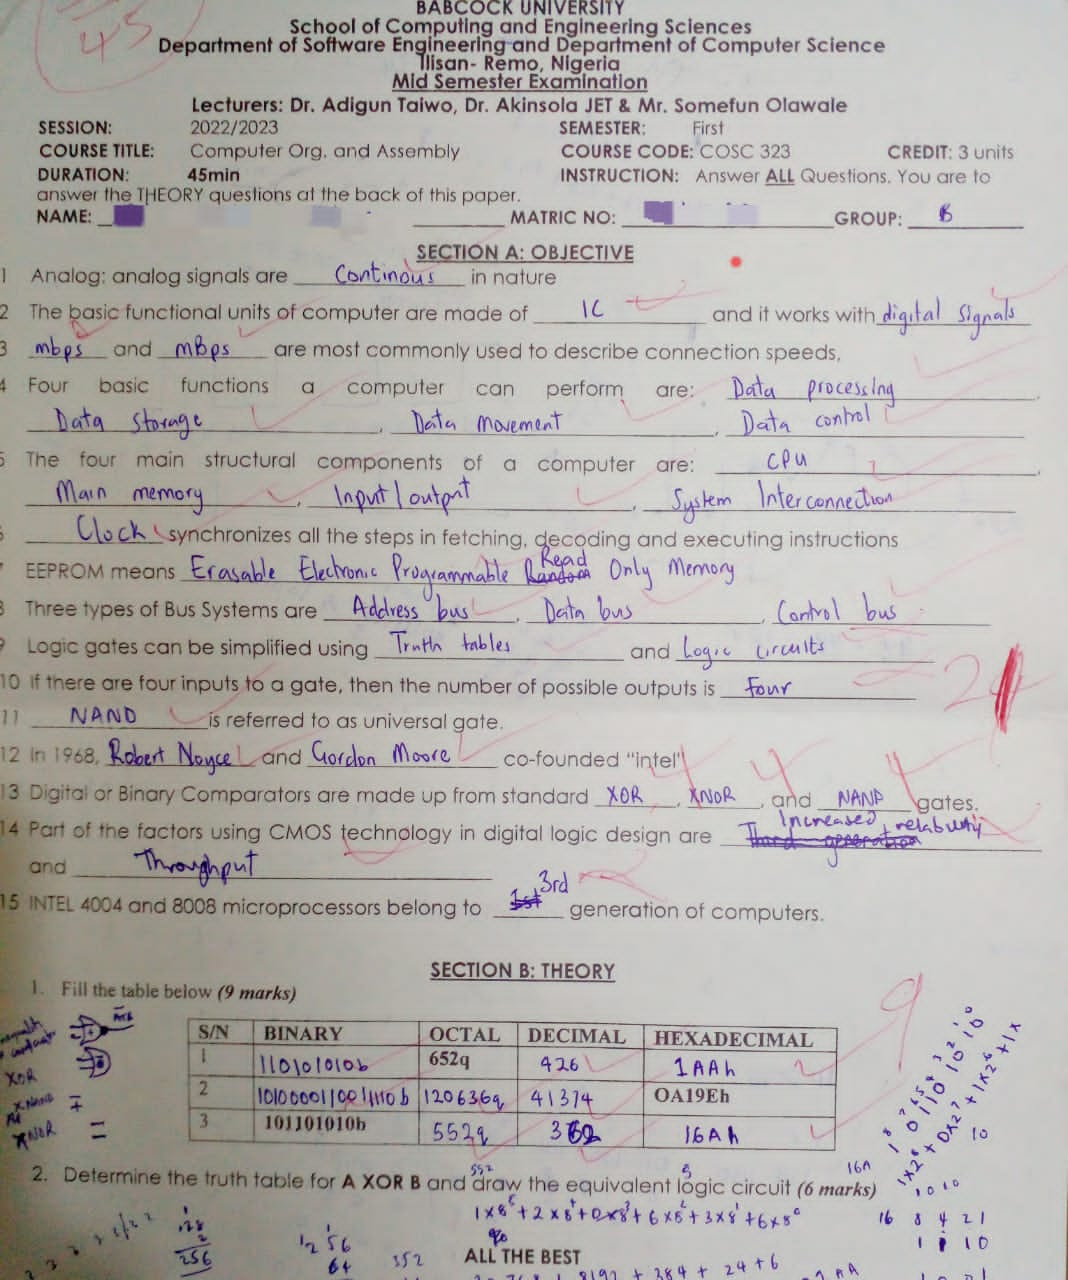 45
BABCOCK UNIVERSITY
School of Computing and Engineering Sciences
Department of Software Engineering and Department of Computer Science
Ilisan- Remo, Nigeria
Mid Semester Examination
Lecturers: Dr. Adigun Taiwo, Dr. Akinsola JET & Mr. Somefun Olawale
SESSION: 2022/2023 SEMESTER: First
COURSE TITLE: Computer Org. and Assembly COURSE CODE: COSC 323 CREDIT: 3 units
DURATION: 45min INSTRUCTION: Answer ALL Questions. You are to
answer the THEORY questions at the back of this paper.
NAME: MATRIC NO: GROUP: B
SECTION A: OBJECTIVE
1 Analog: analog signals are Continous in nature
2 The basic functional units of computer are made of IC and it works with digital signals
3 mbps and mBps are most commonly used to describe connection speeds,
4 Four basic functions a computer can perform are: Data processing
Data storage, Data Movement, Data control
5 The four main structural components of a computer are: CPU
Main memory, Input/output, System Interconnection
Clock synchronizes all the steps in fetching, decoding and executing instructions
EEPROM means Erasable Electronic Programmable Random Read Only Memory
8 Three types of Bus Systems are Address bus, Data bus, Control bus
9 Logic gates can be simplified using Truth tables and Logic circuits
10 If there are four inputs to a gate, then the number of possible outputs is four
11 NAND is referred to as universal gate.
12 In 1968, Robert Noyce and Gordon Moore co-founded "intel"
13 Digital or Binary Comparators are made up from standard XOR, XNOR, and NAND gates.
14 Part of the factors using CMOS technology in digital logic design are Third generation Increased relability
and Throughput
15 INTEL 4004 and 8008 microprocessors belong to 1st 3rd generation of computers.
SECTION B: THEORY
1. Fill the table below (9 marks)
9
S/N BINARY OCTAL DECIMAL HEXADECIMAL
1 110101010b 652q 426 1AAh
2 1010000110011110b 120636q 41374 OA19Eh
3 101101010b 552q 362 16Ah
XOR
XNOR
2. Determine the truth table for A XOR B and draw the equivalent logic circuit (6 marks)
552
16A
1x8⁵+2x8⁴+0x8³+6x8²+3x8¹+6x8⁰
16 8 4 2 1
256
64
352
ALL THE BEST
8192 + 384 + 24 + 6